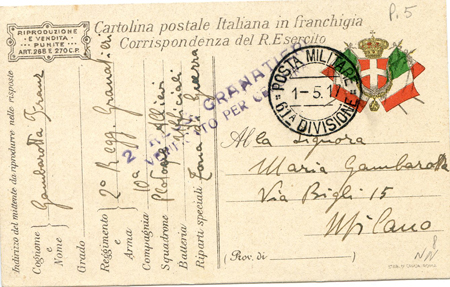 P. 5
RIPRODUZIONE
E VENDITA
PUNITE
ART. 268 E 270 C.P.
Cartolina postale Italiana in franchigia
Corrispondenza del R. Esercito
POSTA MILITARE
1-5.17
61A DIVISIONE
GRANATIERI
VERIFICATO PER CENSURA
Alla Signora
Maria Gambarotta
Via Bigli 15
Milano
(Prov. di )
Indirizzo del mittente da riprodurre nelle risposte
Cognome e Nome Gambarotta Franz
Grado
Reggimento e Arma 2º Regg. Granatieri
Compagnia 10a
Squadrone Plotone Allievi
Batteria Ufficiali
Riparti speciali Zona di Guerra